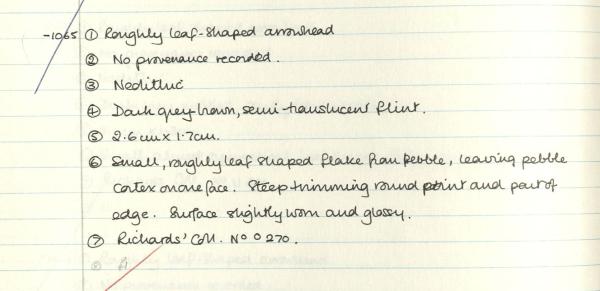 -1065 ① Roughly leaf-shaped arrowhead
② No provenance recorded.
③ Neolithic
④ Dark grey-brown, semi-translucent flint.
⑤ 2.6cm x 1.7cm.
⑥ Small, roughly leaf shaped flake from pebble, leaving pebble
cortex on one face. Steep trimming round point and part of
edge. Surface slightly worn and glossy.
⑦ Richards' Coll. No 0270.